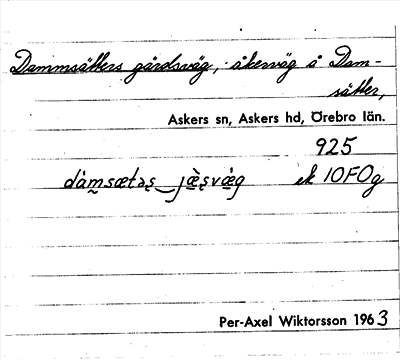 Dammsätters gårdsväg, åkerväg å Dam-
sätter,
Askers sn, Askers hd, Örebro län.
925
dàm̰sætəʂ‿jæ̀ʂvæ̣g ek 10F0g
Per-Axel Wiktorsson 1963